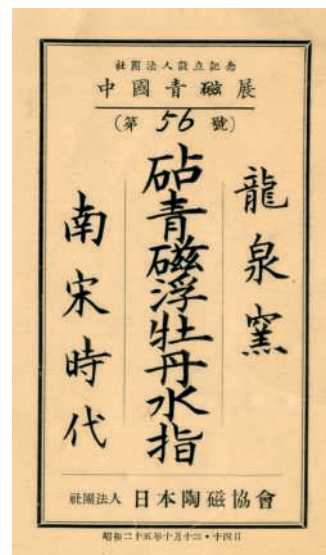 社團法人設立記念
中國青磁展
(第 56 號)
龍泉窯
砧青磁浮牡丹水指
南宋時代
社團法人 日本陶磁協會
昭和二十五年十月十三・十四日